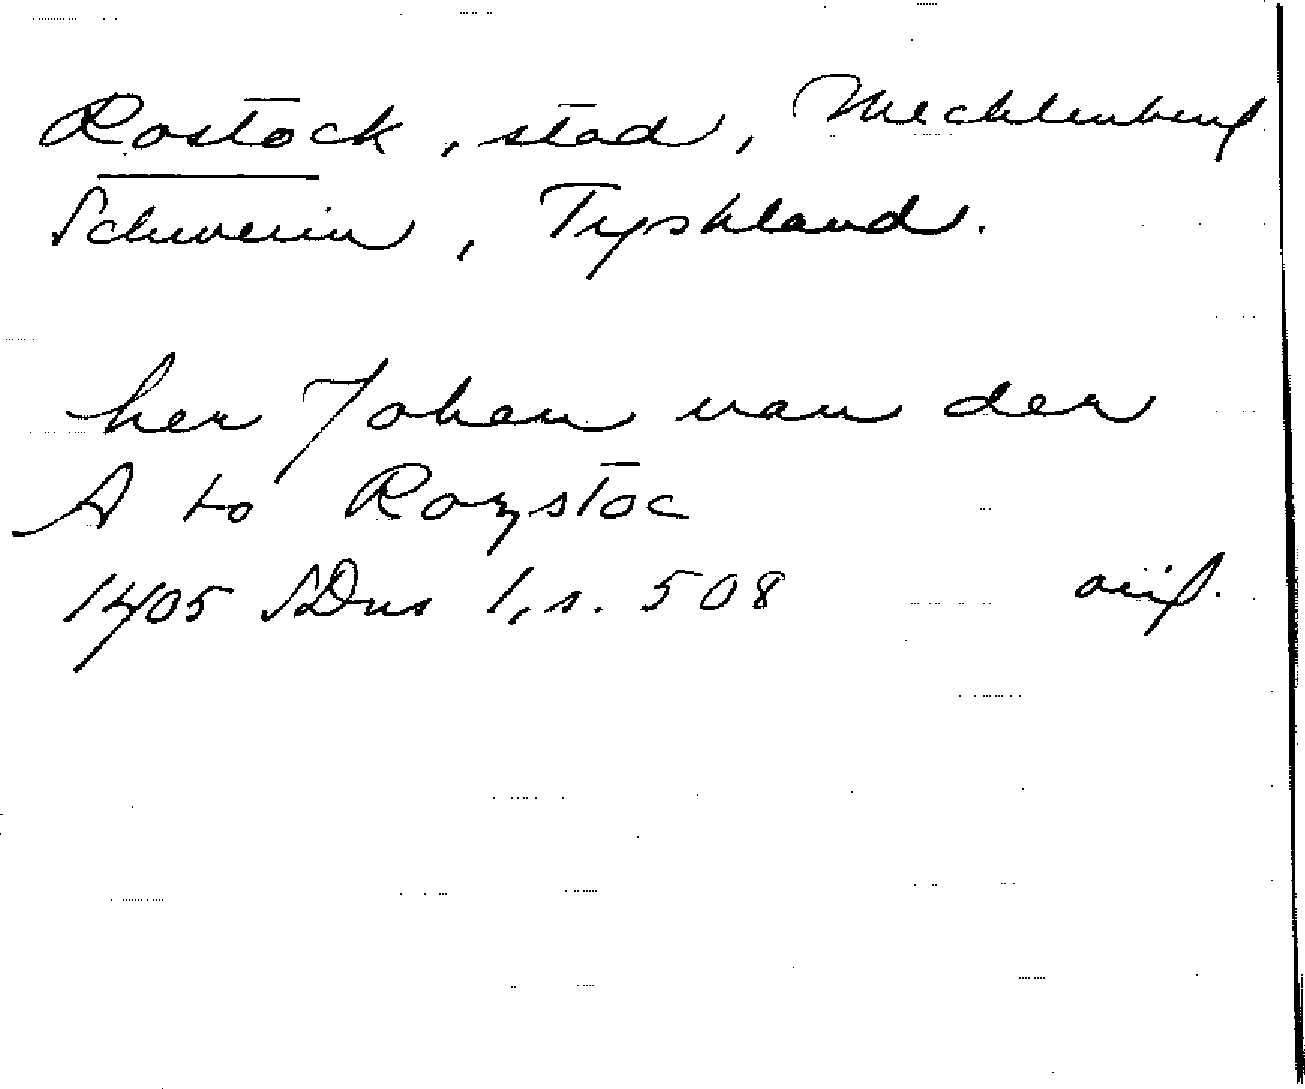 Rostock, stad, Mecklenburg
Schwerin, Tyskland.
her Johan van der
A to Rozstoc
1405 SDns 1, s. 508